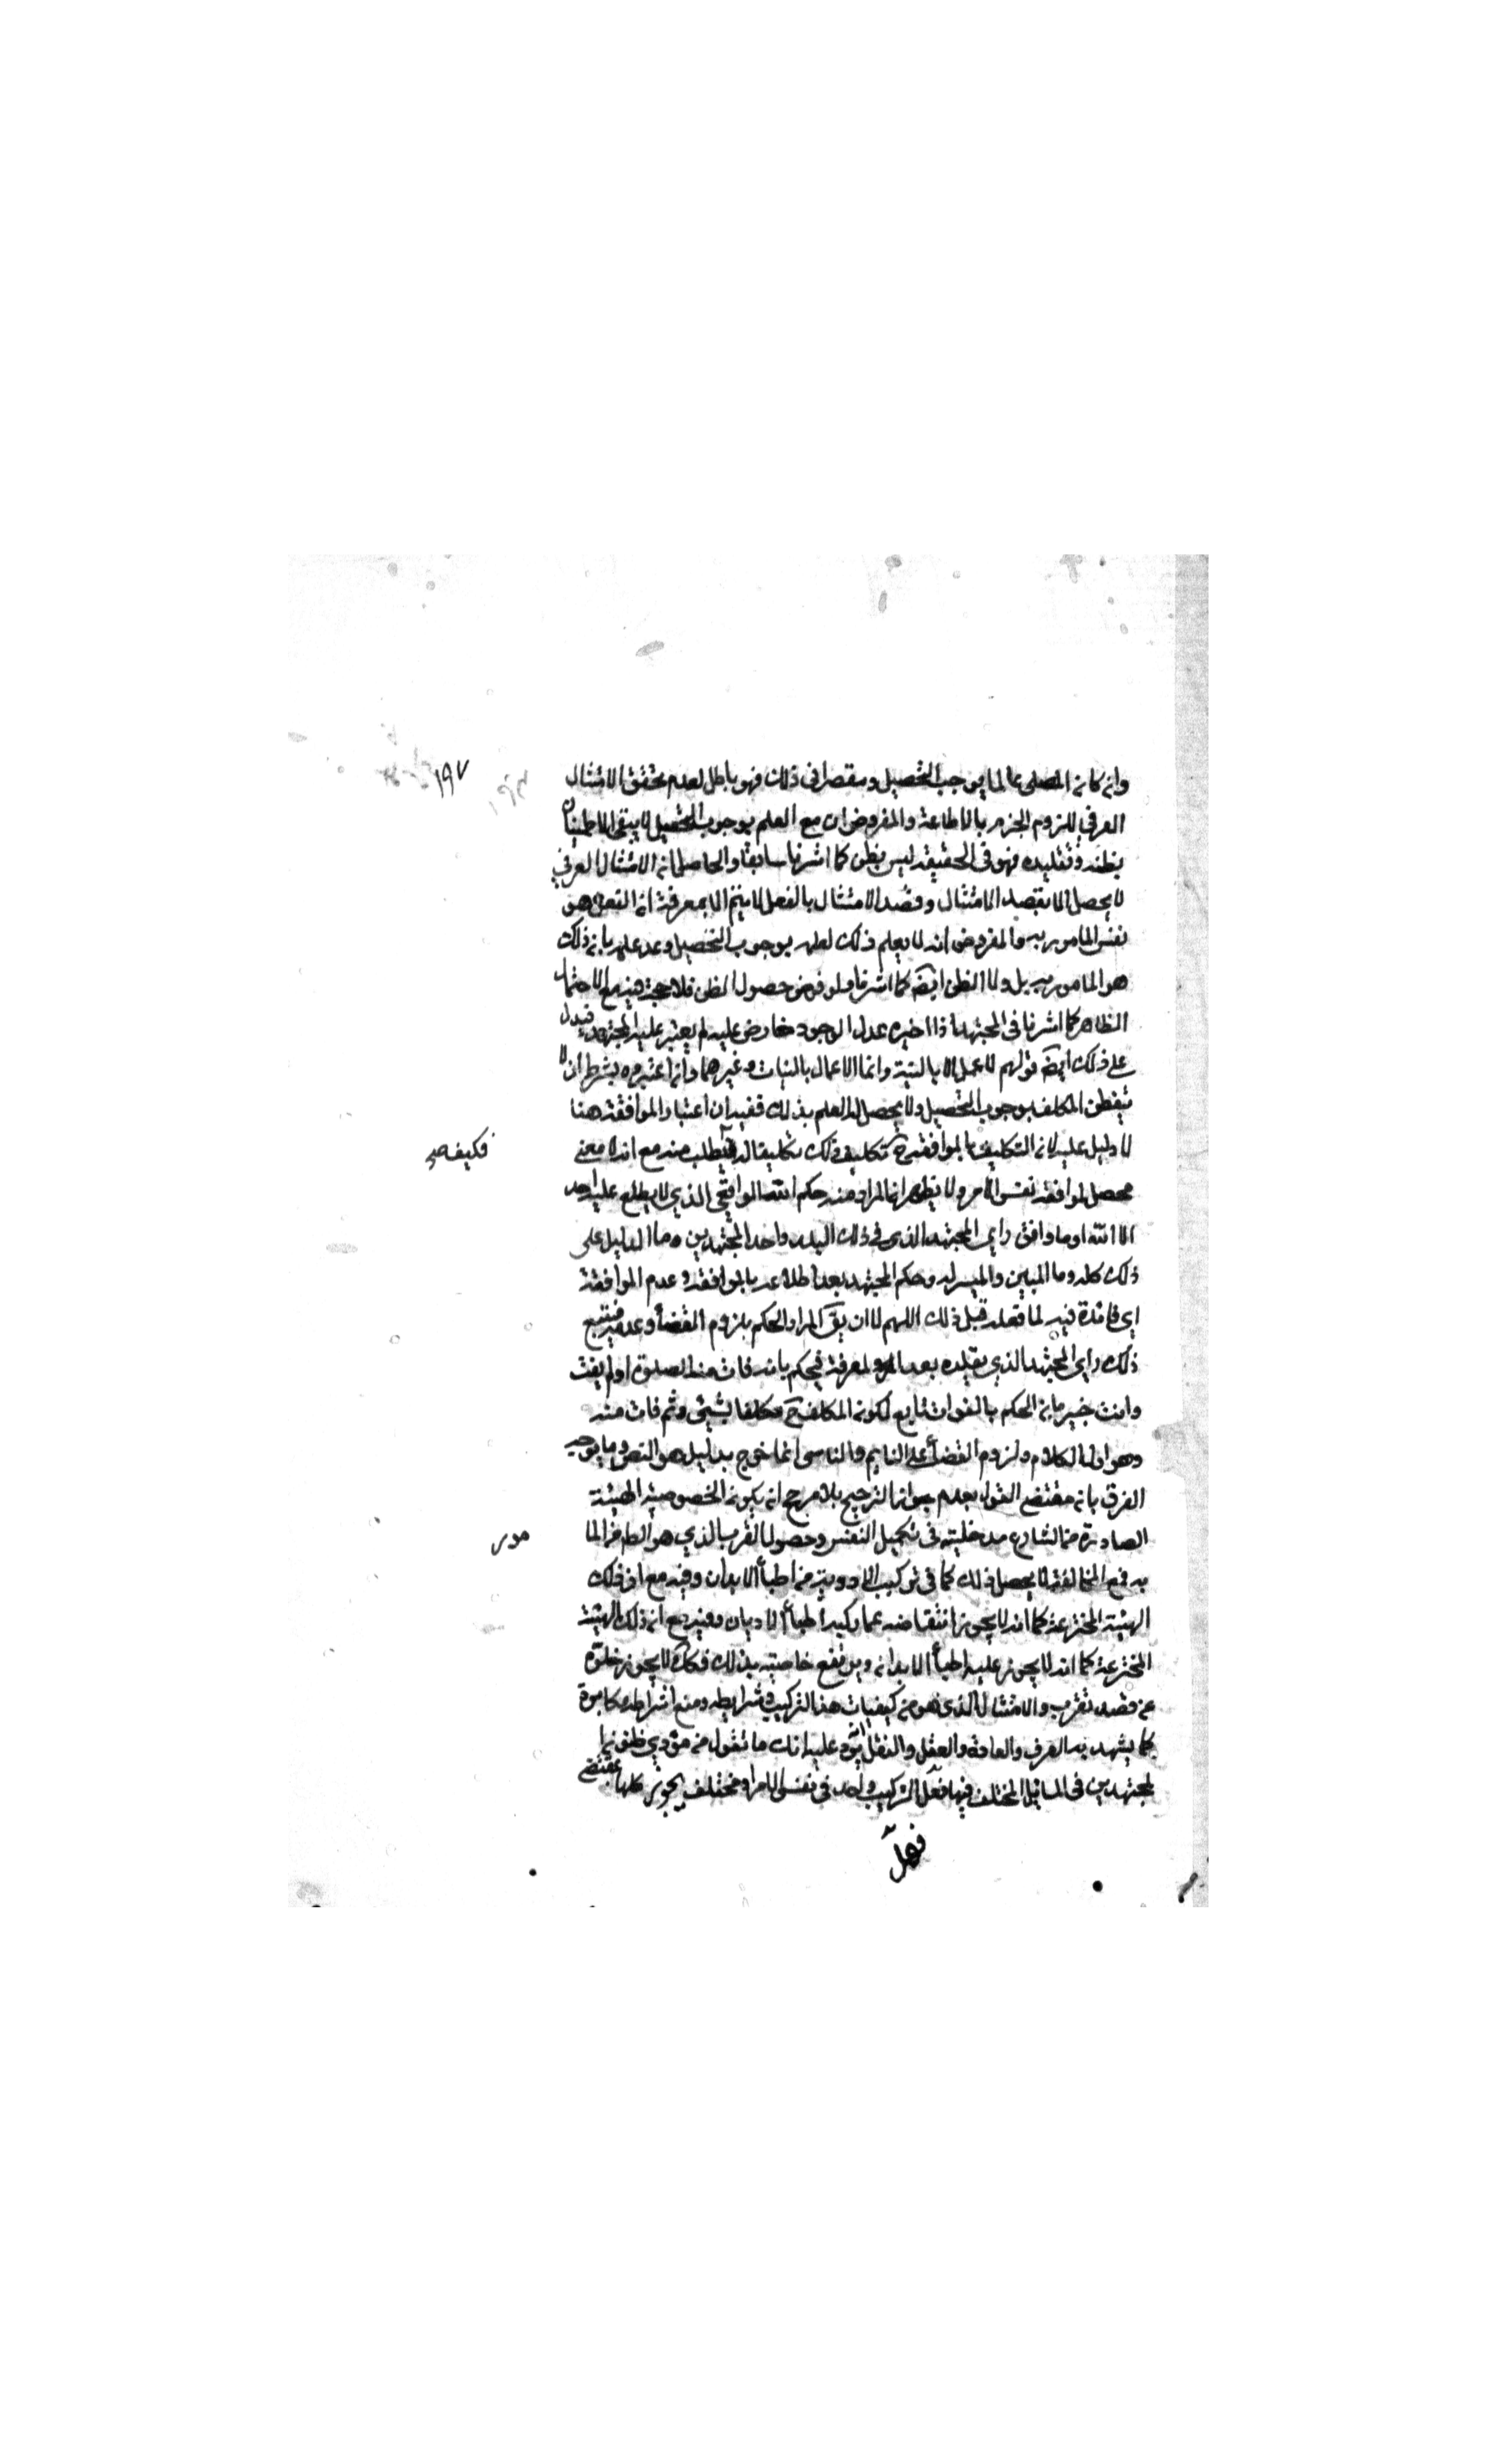 ١٩٧
وان كان المصلى عالما بوجوب التحصيل ومقصرا فى ذلك فهو باطل لعدم تحقق الامتثال
العرفي للزوم الجزم بالاطاعة والمفروض ان مع العلم بوجوب التحصيل لا يبقى الاطمينان
بظنه وتقليده فهو فى الحقيقة ليس بظن كما اشرنا سابقا والحاصل ان الامتثال العرفي
لا يحصل الا بقصد الامتثال وقصد الامتثال بالفعل لا يتم الا بمعرفة ان الفعل هو
نفس المامور به والمفروض انه لا يعلم ذلك لعلمه بوجوب التحصيل وعدم علمه بان ذلك
هو المامور به بل ولا الظن ايضا كما اشرنا ولو فرض حصول الظن فلا حجة فيه مع الاحتمال
الظاهر كما اشرنا فى المجتهد اذا اخبره عدل لوجود معارض عليه لم يعتبر عليه المجتهد فيدل
على ذلك ايضا قولهم لا عمل الا بالنية وانما الاعمال بالنيات وغيرهما وان اعتبروه بشرط ان لا
يتفطن المكلف بوجوب التحصيل ولا يحصل له العلم بذلك ففيه ان اعتبار الموافقة هنا
لا دليل عليه لان التكليف بالموافقة ح تكليف ذلك تكليفا لم يطلب منه مع انه لا معنى
فكيف
محصل لموافقة نفس الامر ولا يظهر ان المراد منه حكم الله الواقعي الذي لا يطلع عليه احد
الا الله او ما وافق راي المجتهد الذي فى ذلك البلد واحد المجتهدين وما الدليل على
ذلك كله وما المبين والميسر له وحكم المجتهد بعد اطلاعه بالموافقة وعدم الموافقة
اي فائدة فيه لما فعله قبل ذلك اللهم الا ان يق المراد الحكم بلزوم القضأ وعدمه فيتبع
ذلك راي المجتهد الذي يقلده بعد المعرفة فيحكم بانه فات منه الصلوة او لم يفت
وانت خبير بان الحكم بالفوات تابع لكون المكلف ح مكلفا بشيئ وثم فات منه
وهو اول الكلام ولزوم القضأ على النايم والناسى انما خرج بدليل هو النص وما يوجه
الفرق بان مقتضى القول بعدم جواز الترجيح بلا مرجح ان يكون الخصوصية الهيئة
الصادرة من الشارع مدخلية فى تكميل النفس وحصول القرب الذي هو
به فمع المخالفة لا يحصل ذلك كما فى تركيب الادوية من اطبأ الابدان وفيه مع ان ذلك
الهيئة المخترعة كما انه لا يجوز انتقاضه عما ركبه اطبأ الاديان وفيه مع ان ذلك الهيئة
المخترعة كما انه لا يجوز عليه اطبأ الابدان ويرتفع خاصيته بذلك فكك لا يجوز خلوه
عن قصد تقرب والامتثال الذي هو من كيفيات هذا التركيب وشرايطه ومنع اشتراطه مكابرة
كما يشهد به العرف والعادة والعقل والنقل يرد عليه انك ما تقول فى مؤدي ظنون
لمجتهدين فى المسائل المختلف فيها فهل التركيب واحد فى نفس الامر او مختلف يجوز كلها بمقتضى
فهل